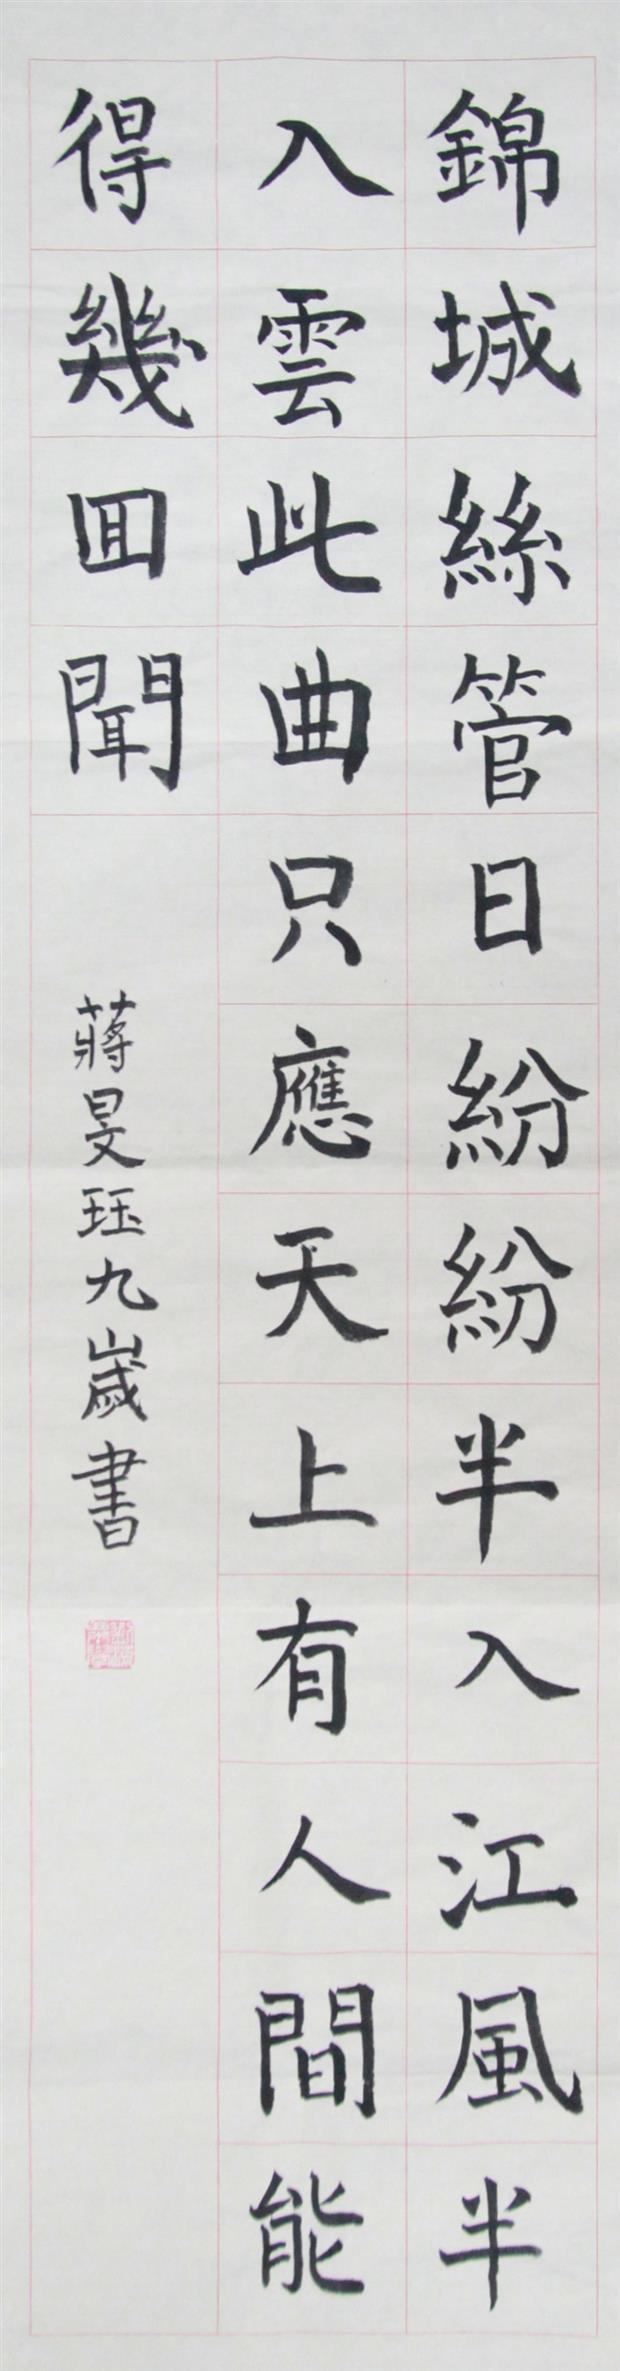 錦城絲管日紛紛半入江風半
入雲此曲只應天上有人間能
得幾囬聞
蔣旻珏九歲書